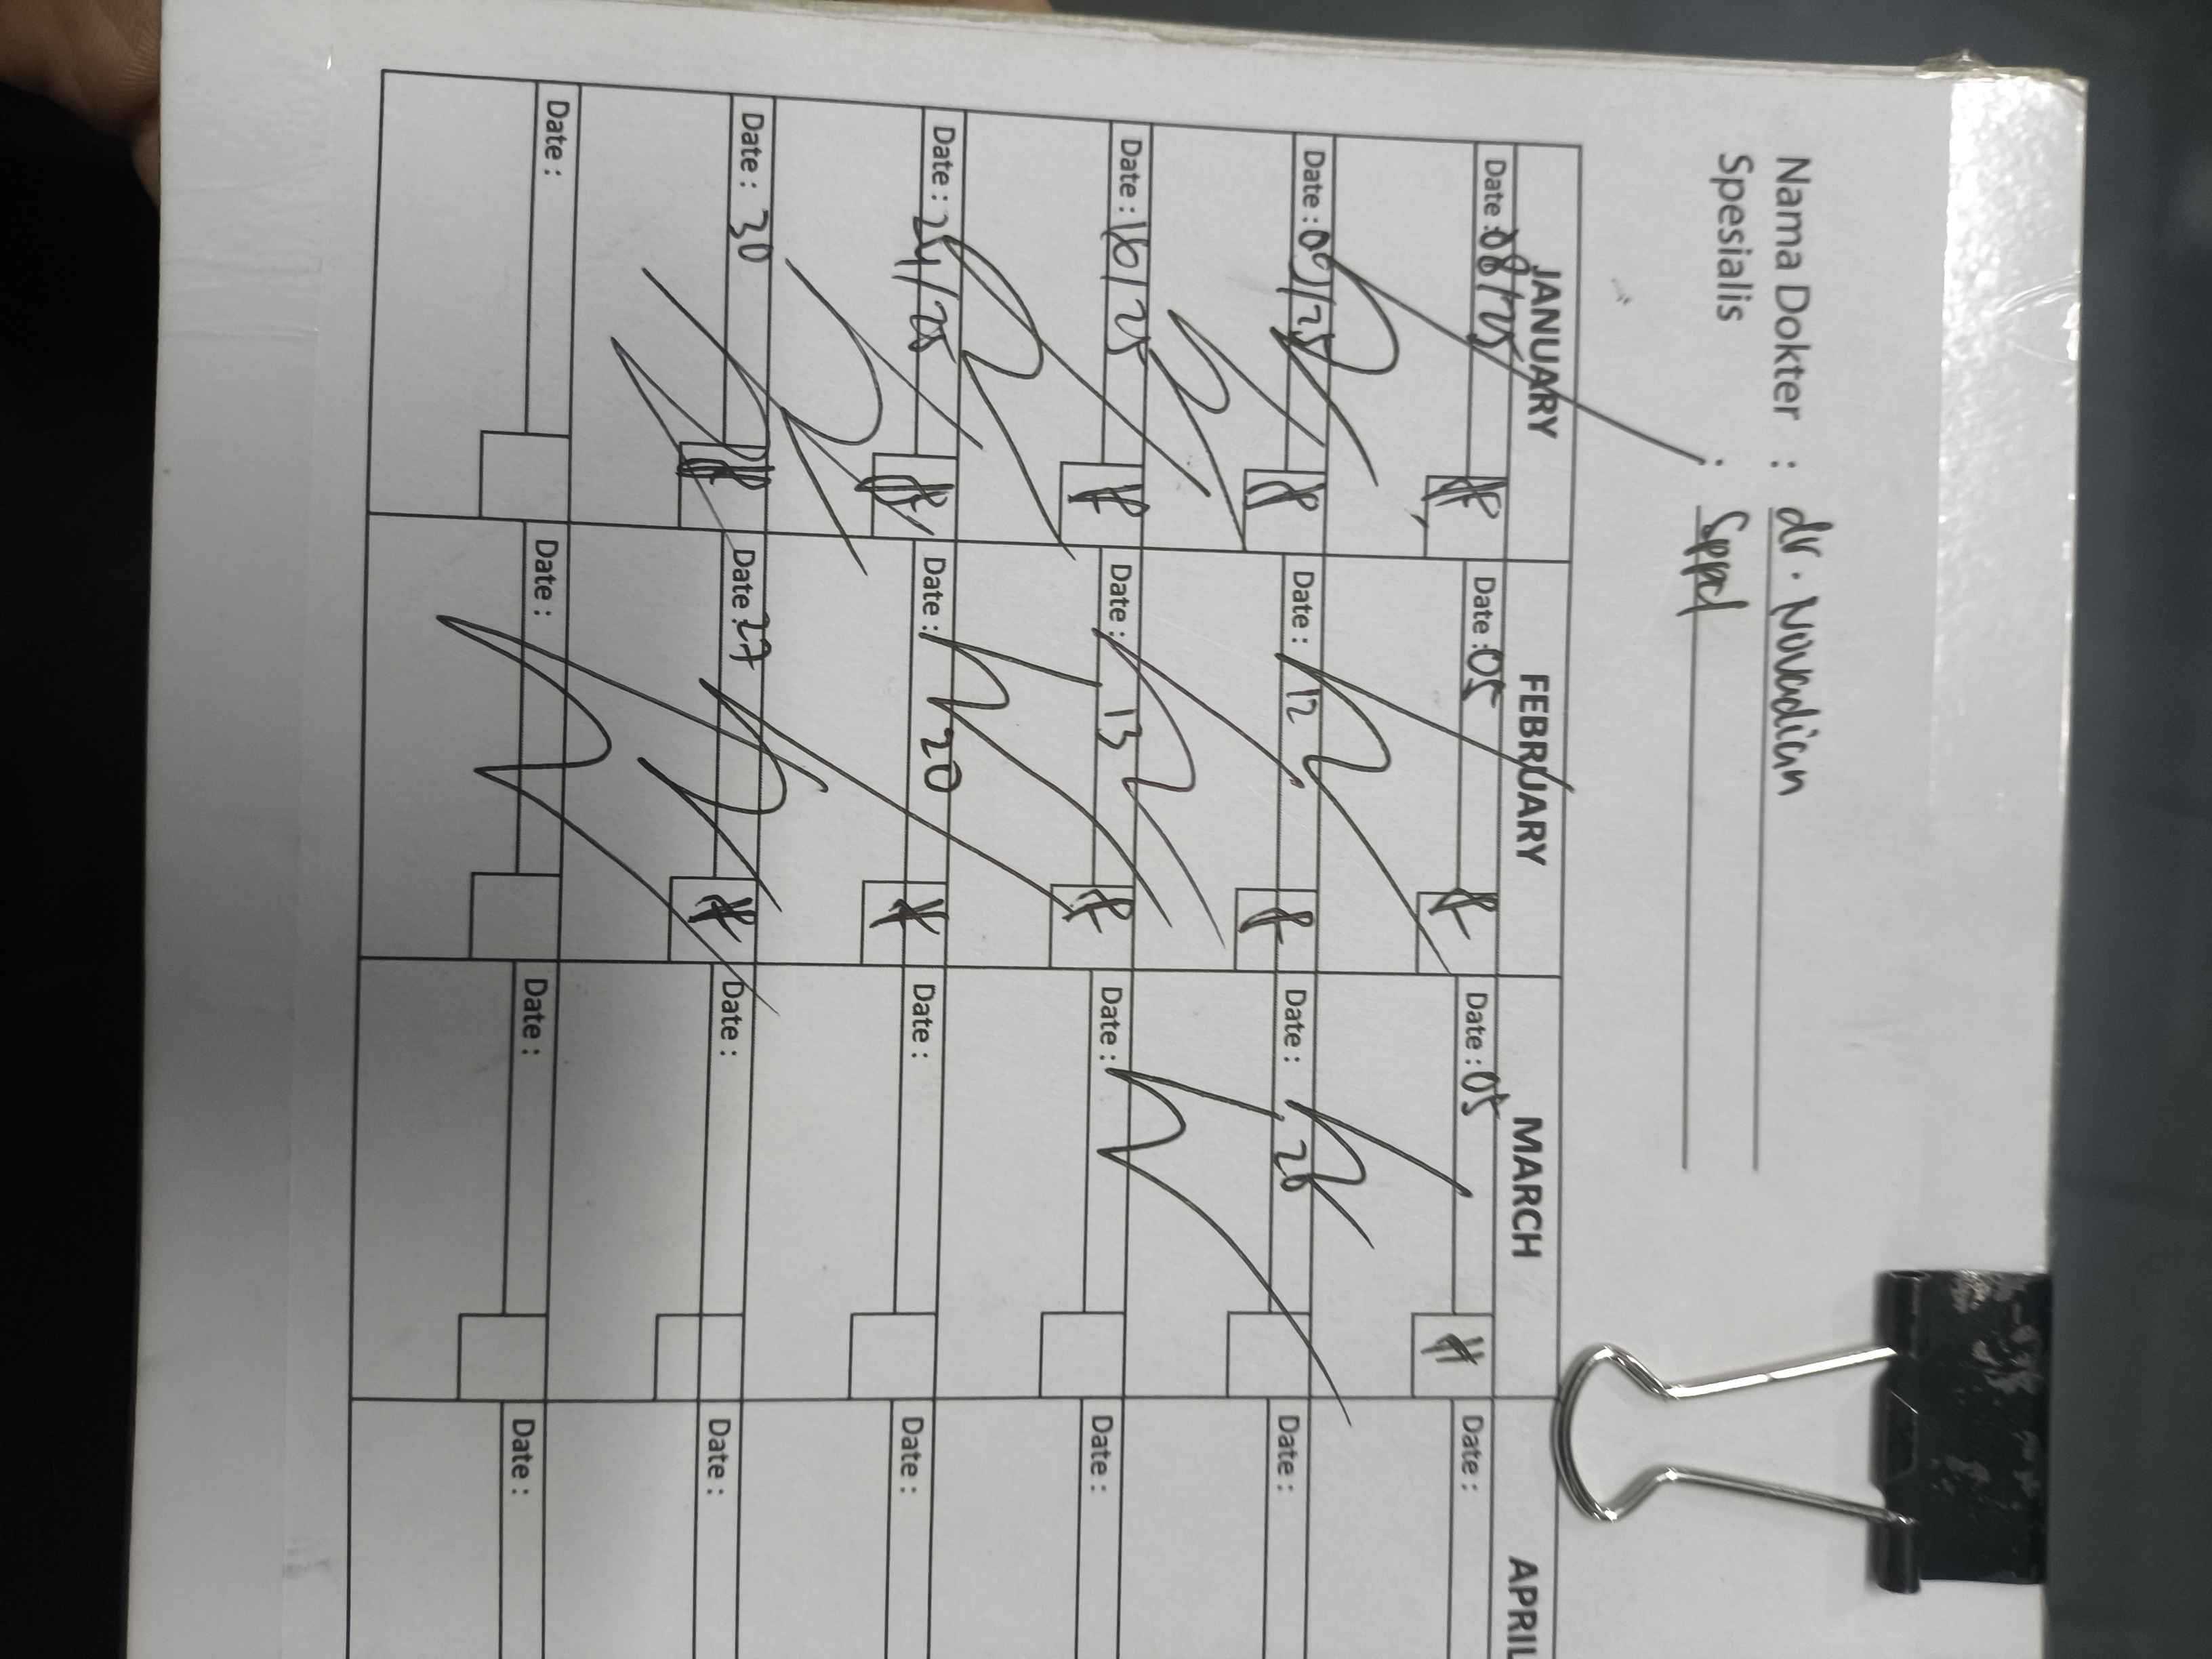 Nama Dokter : dr. Novadian
Spesialis : Sppd
JANUARY FEBRUARY MARCH APRIL
Date : 08/25 Date : 05 Date : 05 Date :
Date : 09/25 Date : 12 Date : 26 Date :
Date : 16/25 Date : 13 Date : Date :
Date : 24/25 Date : 20 Date : Date :
Date : 30 Date : 27 Date : Date :
Date : Date : Date : Date :